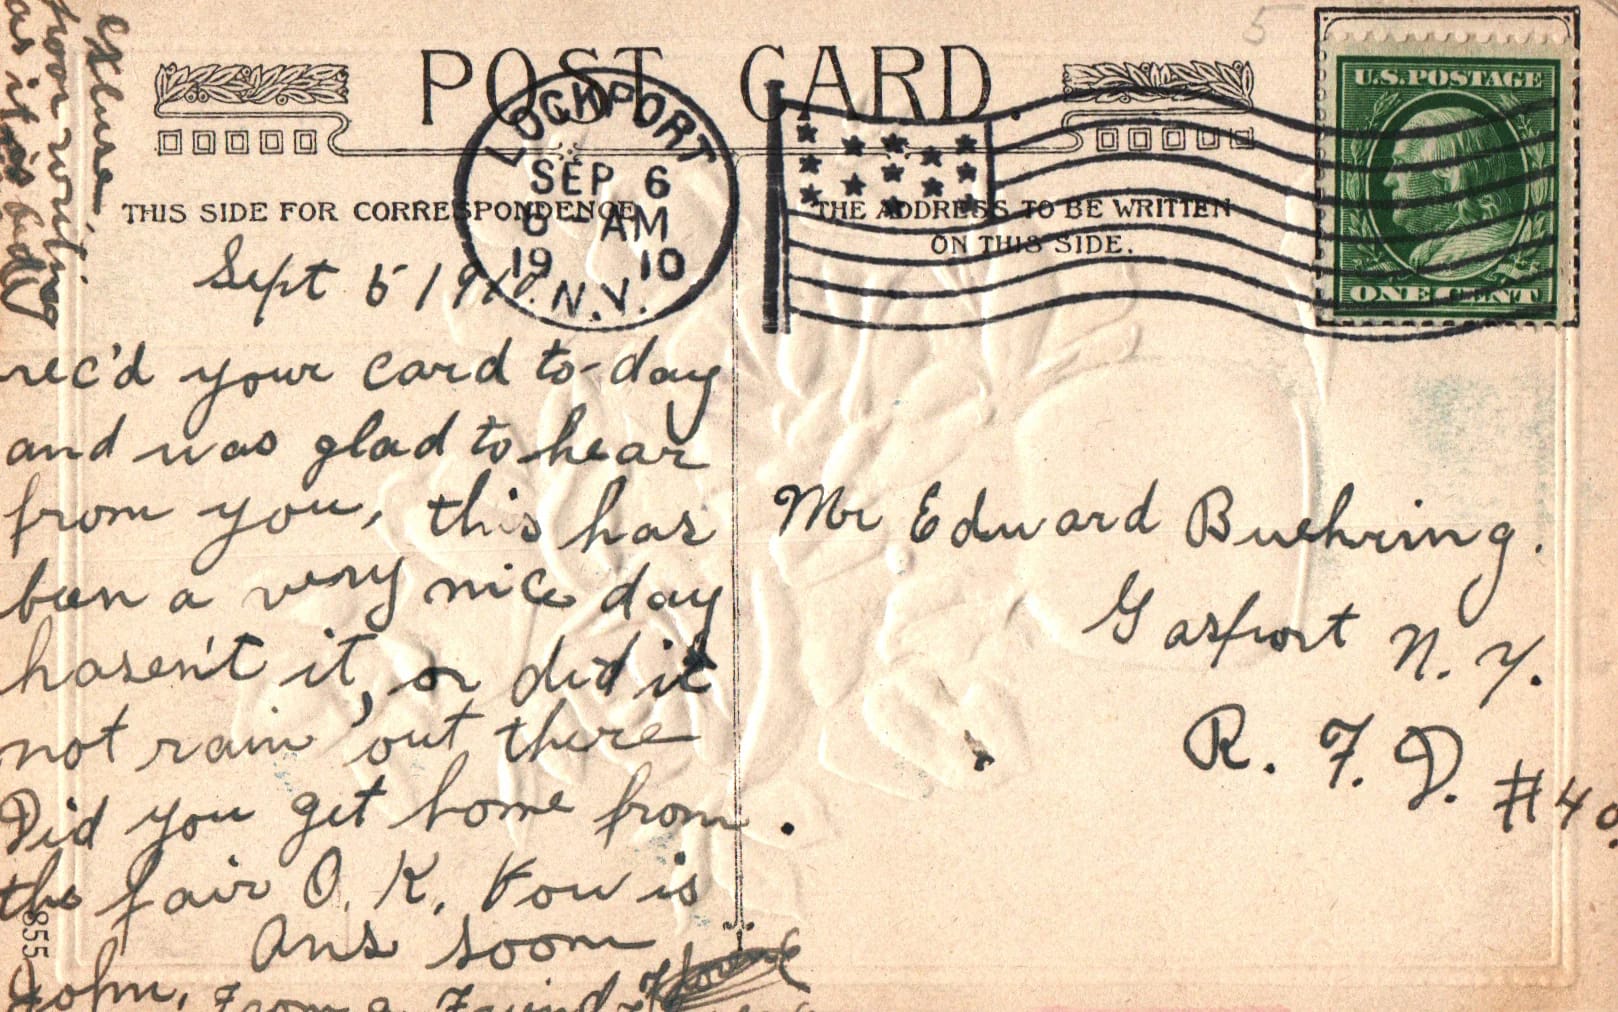 POST CARD.
THIS SIDE FOR CORRESPONDENCE
THE ADDRESS TO BE WRITTEN
ON THIS SIDE.
U.S. POSTAGE
ONE CENT
LOCKPORT
SEP 6
AM
19 10
N.Y.
5
Sept 5 1910.
rec'd your card to-day
and was glad to hear
from you, this has
been a very nice day
hasen't it, or did it
not rain out there
Did you get home from
the fair O. K. How is
John. Ans soon
From a Friend
excuse
poor writing
as it is bad
855
Mr Edward Buehring.
Gasport N. Y.
R. F. D. #40.